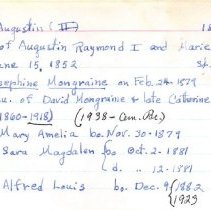 Augustin (II) 18
of Augustin Raymond I and Marie
June 15, 1852 Sp.
Josephine Mongraine on Feb. 24, 1879
au. of David Mongraine & late Catherine
1860-1918) (1938-Cem. Rec)
Mary Amelia bo. Nov. 30-1879
Sara Magdalen bo. Oct. 2-1881
d. " 12-1881
Alfred Louis bo. Dec. 9 1882
1923